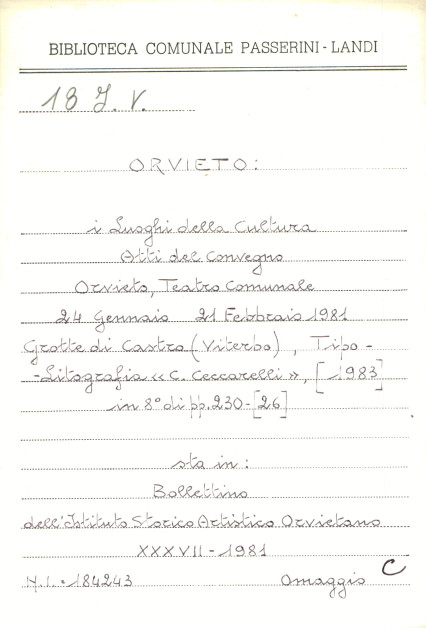 BIBLIOTECA COMUNALE PASSERINI - LANDI
18 J. V.
ORVIETO:
i Luoghi della Cultura
Atti del Convegno
Orvieto, Teatro Comunale
24 Gennaio 21 Febbraio 1981
Grotte di Castro (Viterbo), Tipo-
-Litografia « C. Ceccarelli », [1983]
in 8° di pp. 230-[26]
sta in:
Bollettino
dell'Istituto Storico Artistico Orvietano
XXXVII - 1981
N.I. = 184243 Omaggio C